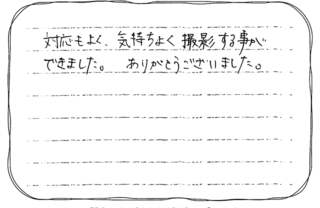 対応もよく、気持ちよく撮影する事が
できました。 ありがとうございました。